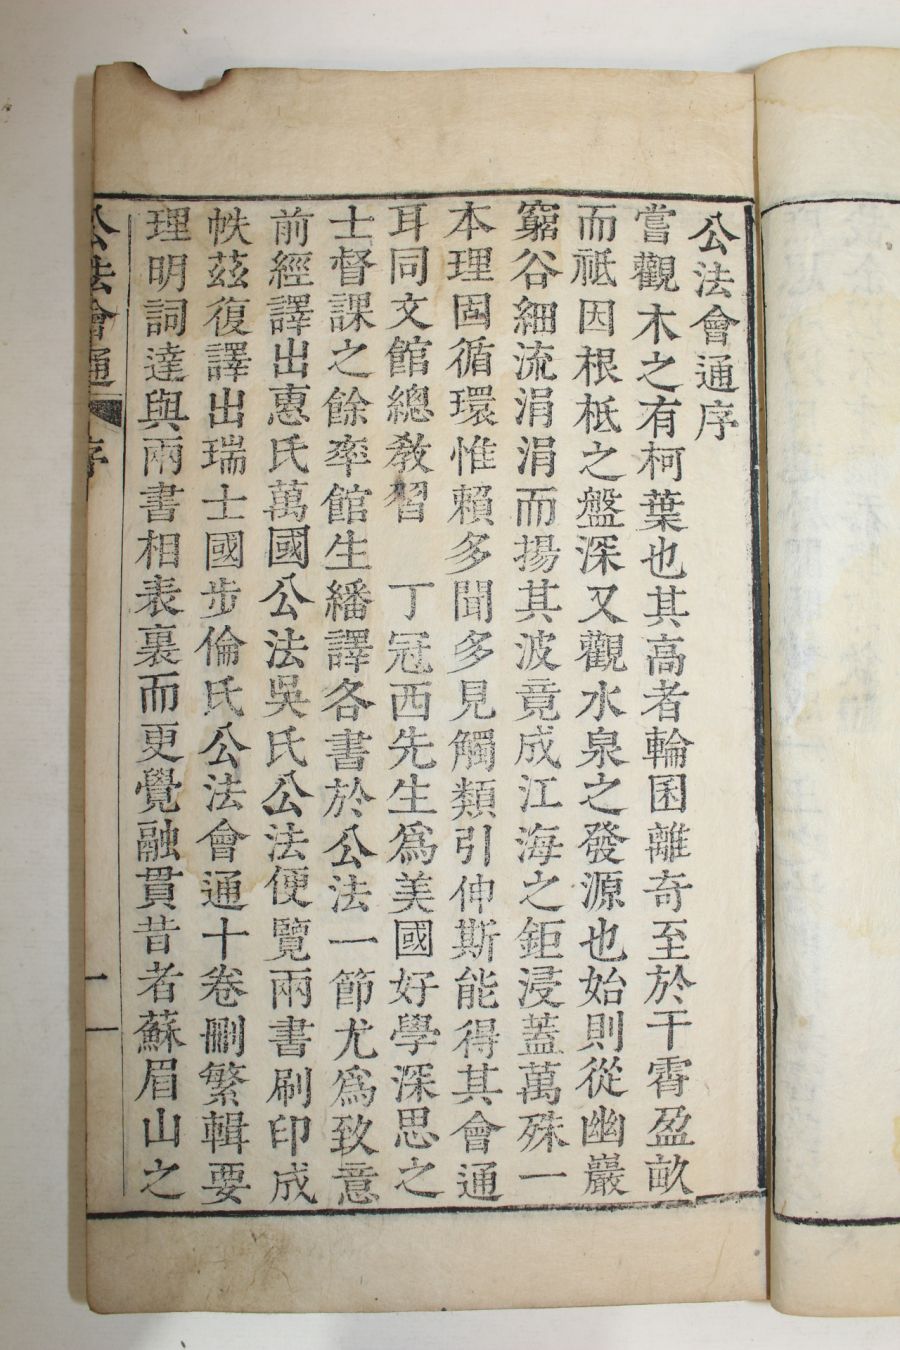 公法會通序
嘗觀木之有柯葉也其高者輪囷離奇至於干霄盈畝
而祗因根柢之盤深又觀水泉之發源也始則從幽巖
窮谷細流涓涓而揚其波竟成江海之鉅浸蓋萬殊一
本理固循環惟賴多聞多見觸類引伸斯能得其會通
耳同文館總敎習 丁冠西先生爲美國好學深思之
士督課之餘率館生繙譯各書於公法一節尤爲致意
前經譯出惠氏萬國公法吳氏公法便覽兩書刷印成
帙茲復譯出瑞士國步倫氏公法會通十卷刪繁輯要
理明詞達與兩書相表裏而更覺融貫昔者蘇眉山之
公法會通 序 一